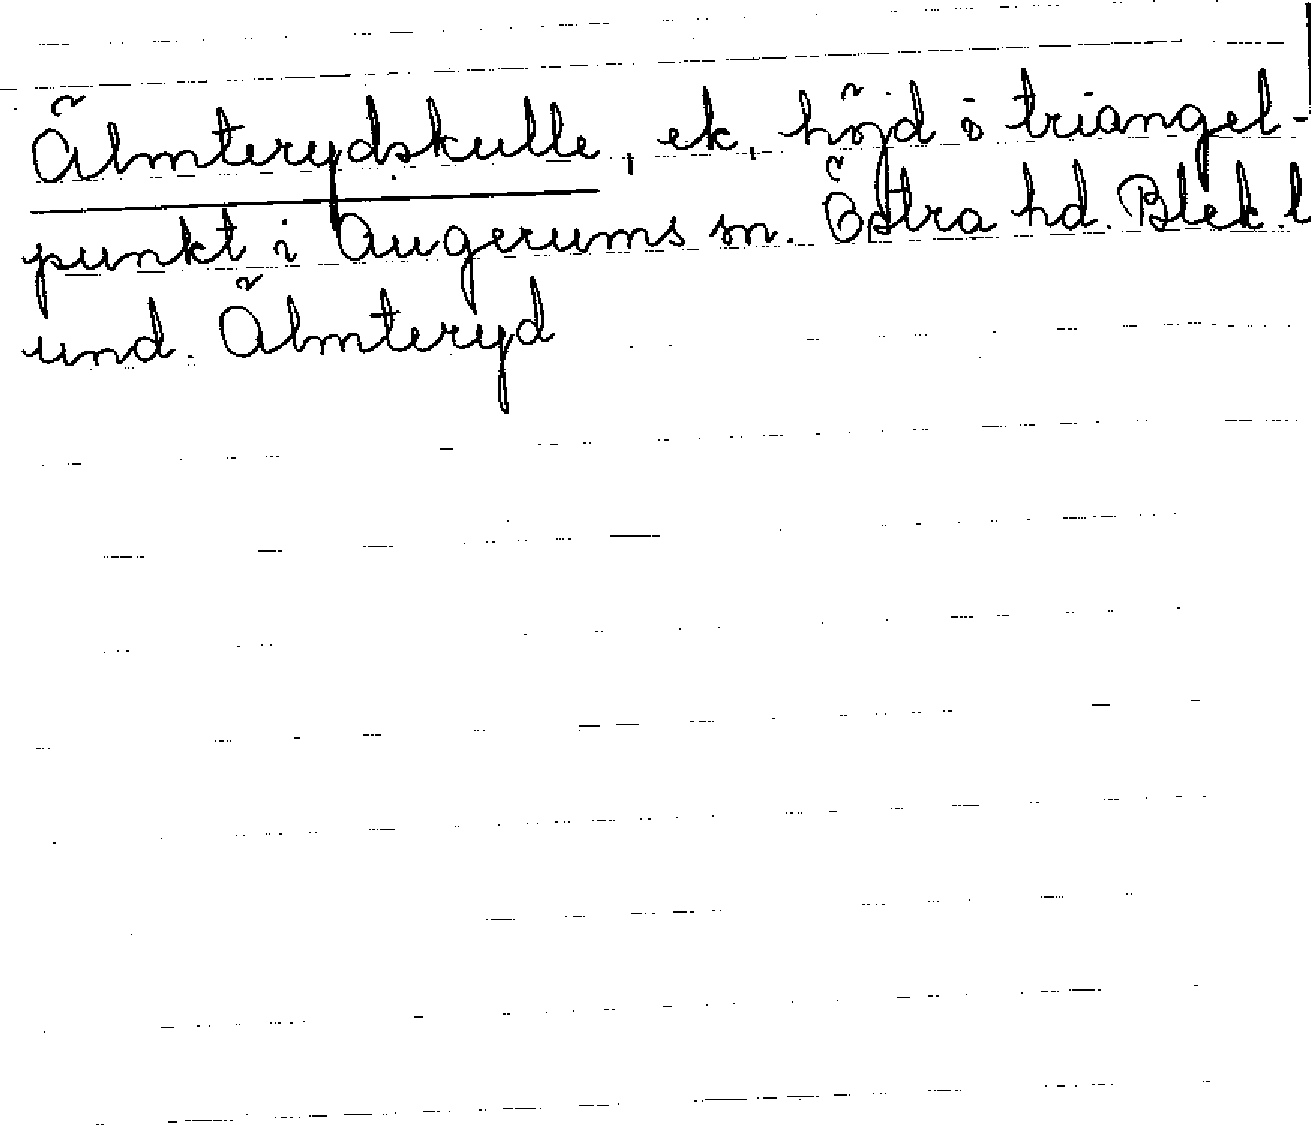 Älmterydskulle, ek, höjd o triangel-
punkt i Augerums sn. Östra hd. Blek. l
und. Älmteryd